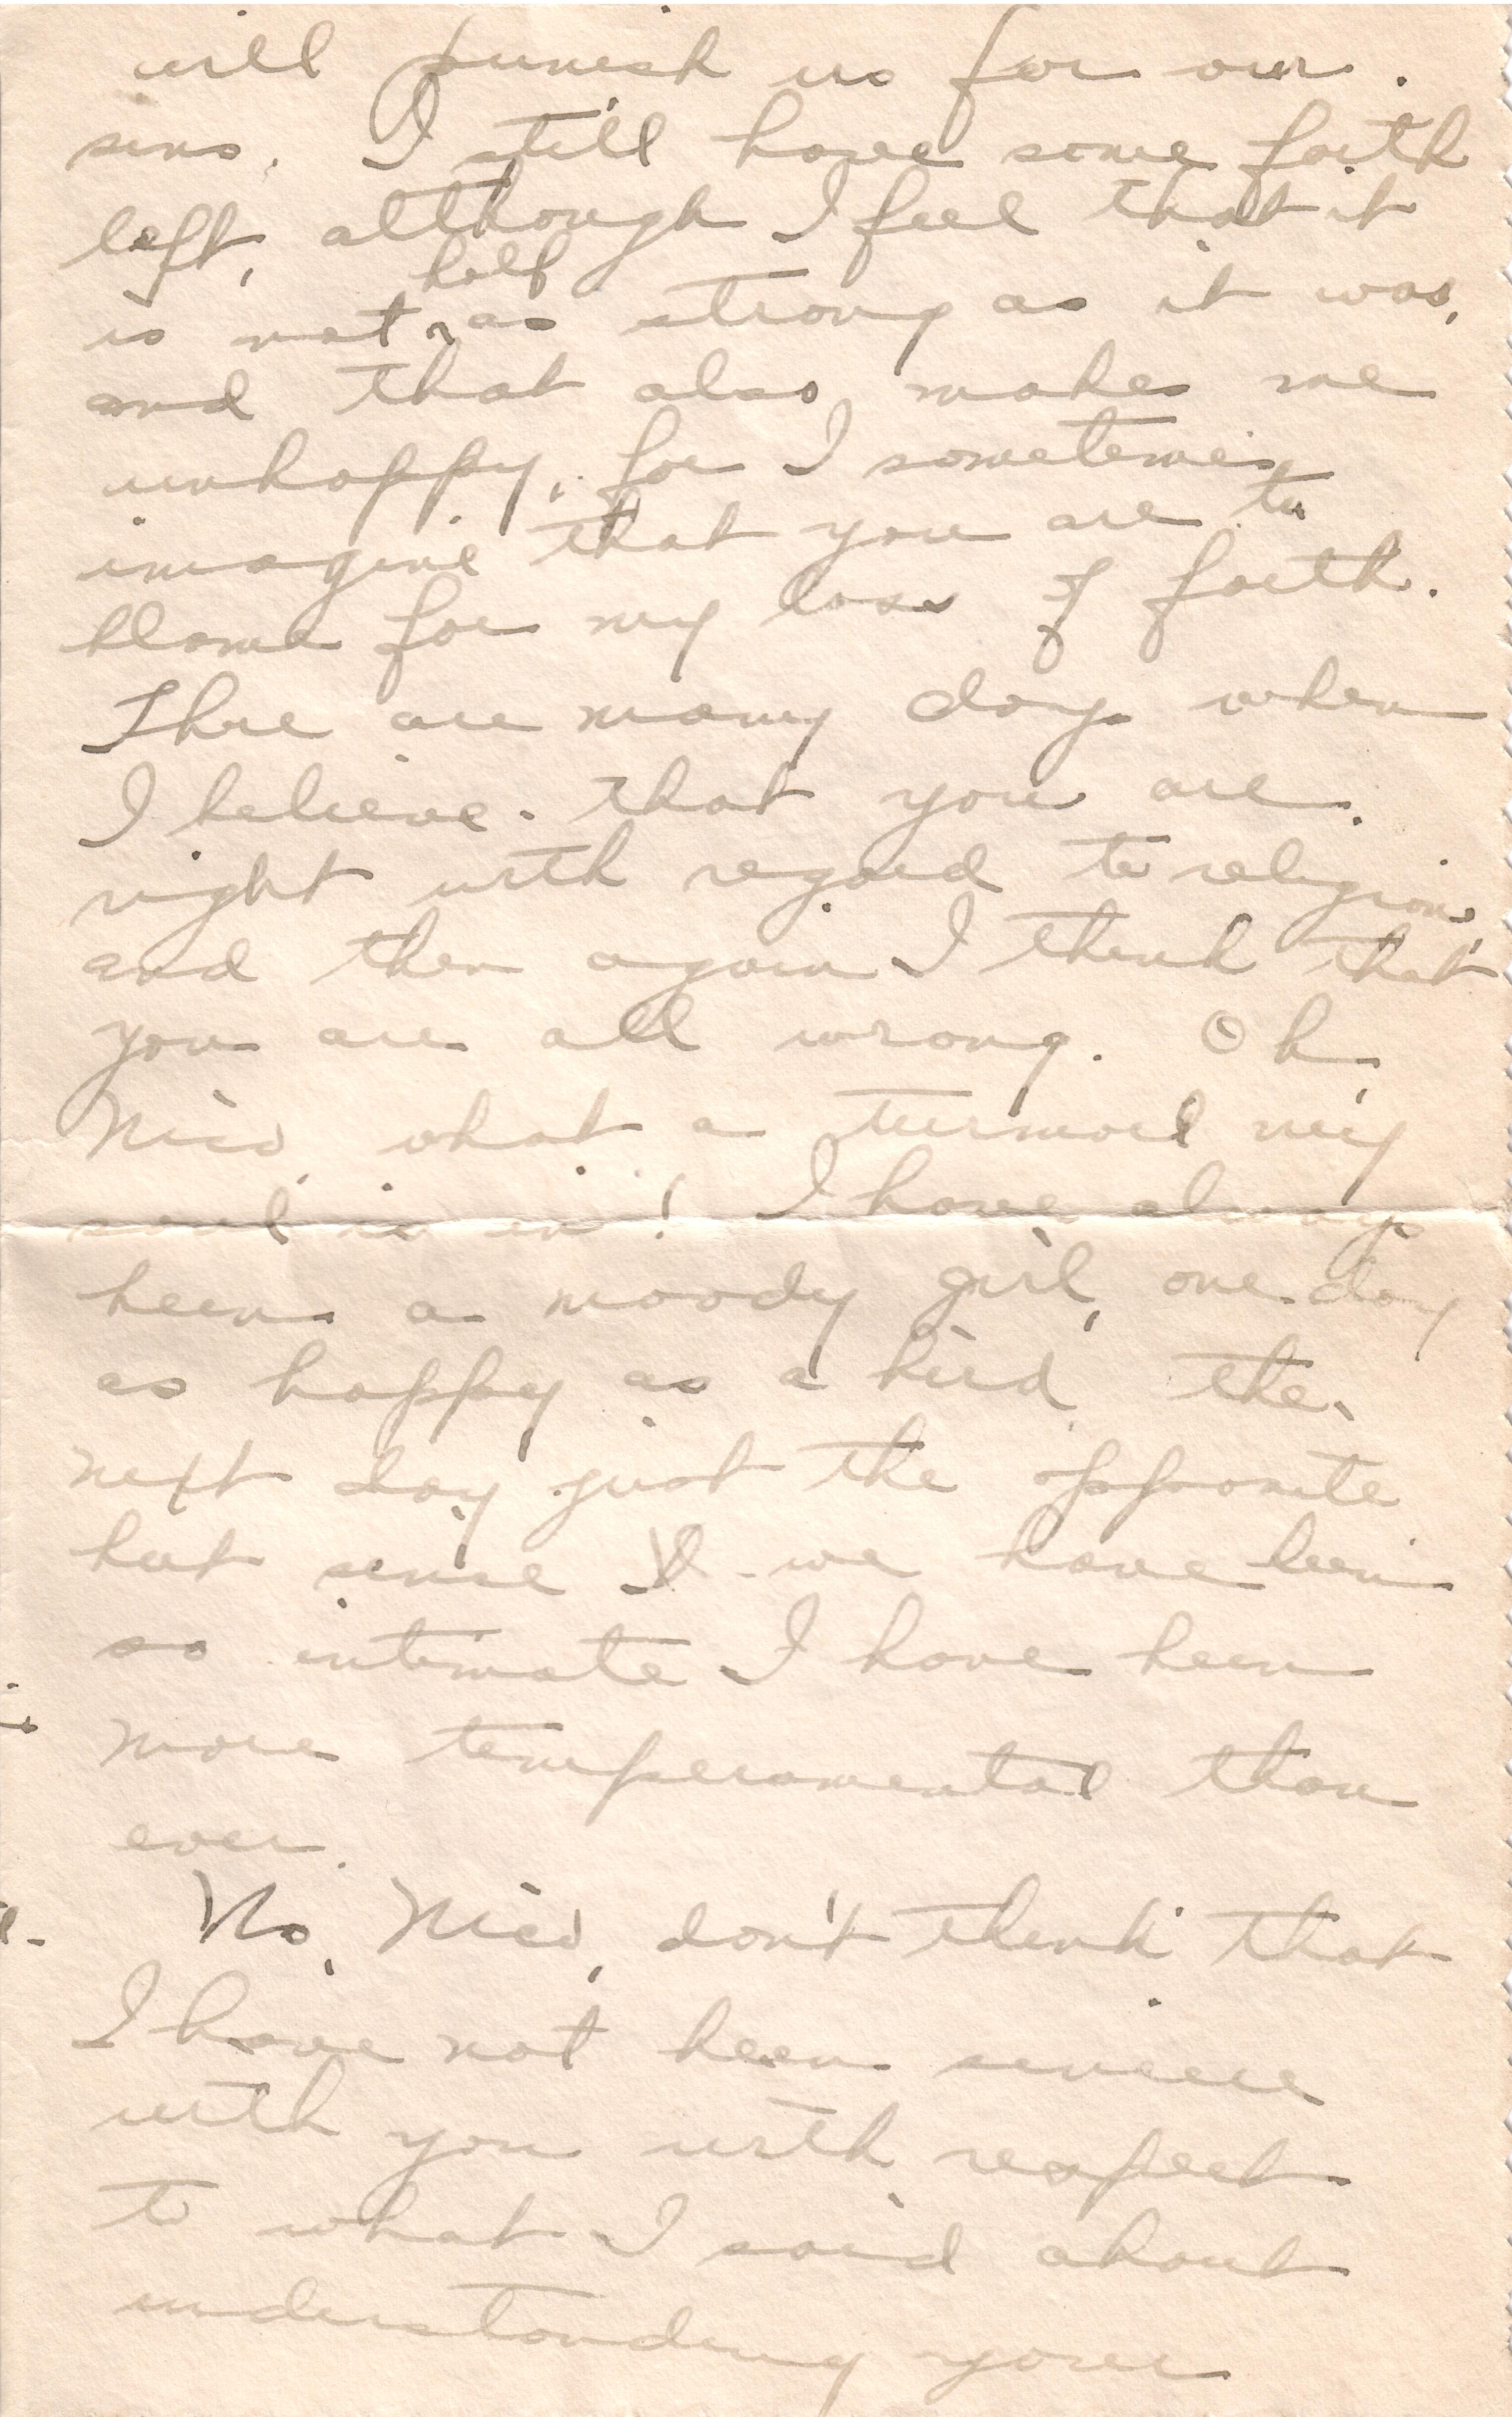 will punish us for our
sins. I still have some faith
left, although I feel that it
half
is not ^ as strong as it was,
and that also makes me
unhappy, for I sometimes
imagine that you are to
blame for my loss of faith.
There are many days when
I believe that you are
right with regard to religion,
and then again I think that
you are all wrong. Oh,
Nico, what a turmoil my
soul is in! I have always
been a moody girl, one day
as happy as a bird, the
next day just the opposite
but since we have been
so intimate I have been
more temperamental than
ever.
No, Nico, don't think that
I have not been sincere
with you with respect
to what I said about
understanding your